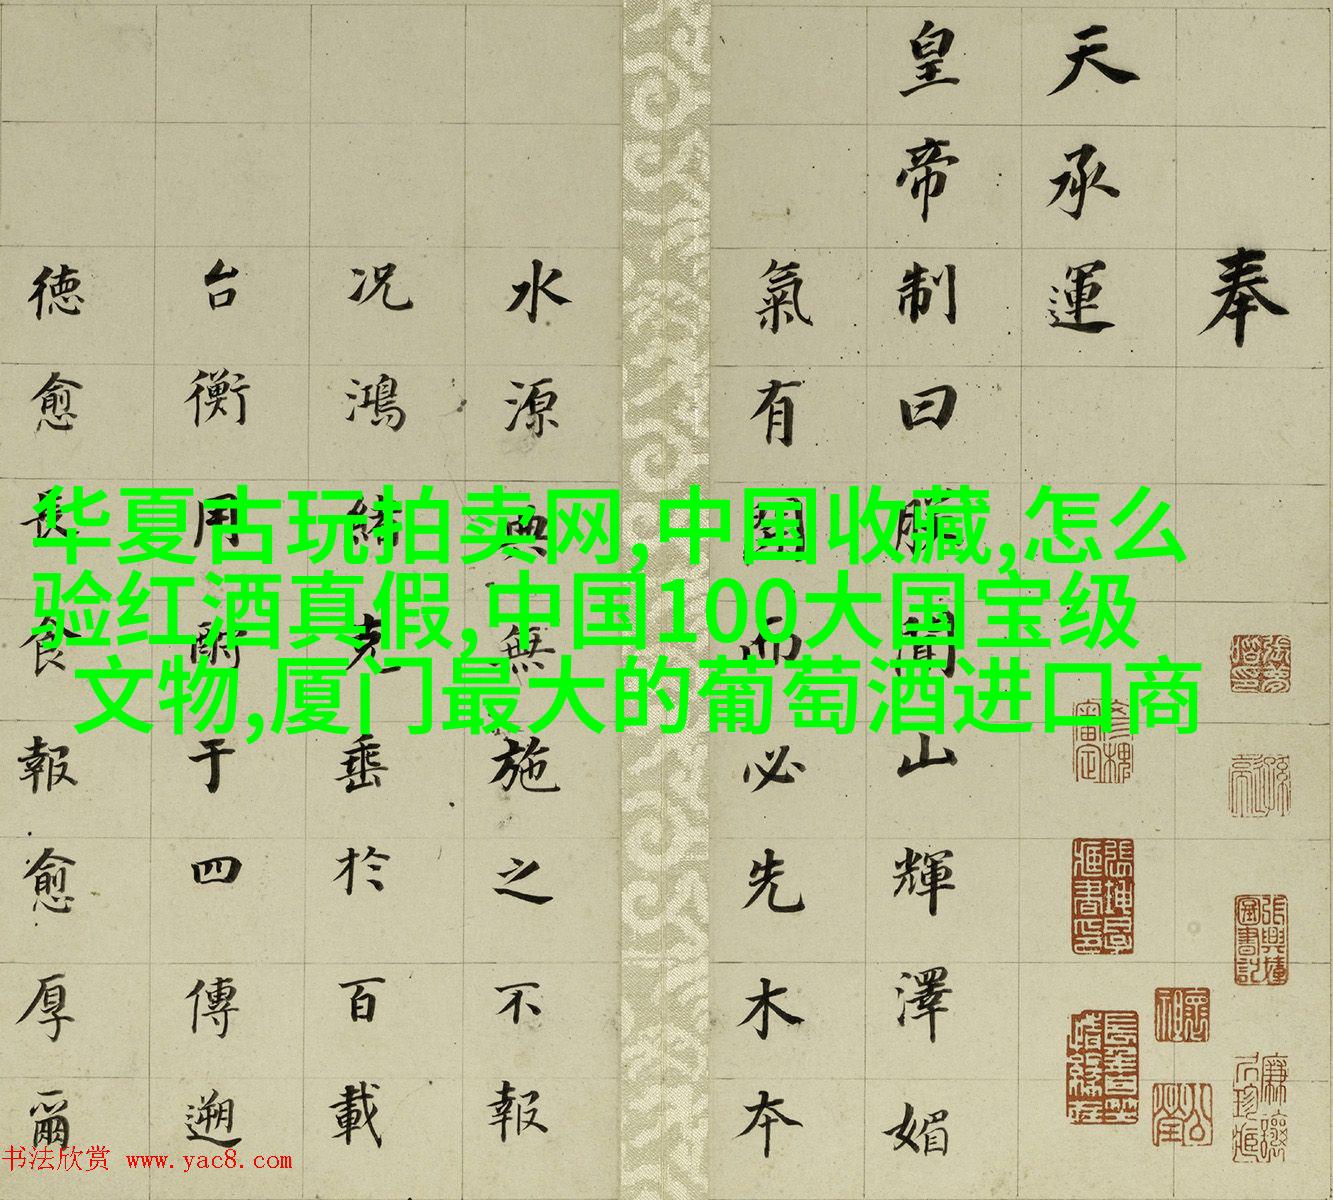 奉
天承運
皇帝制曰朕聞山輝澤媚
氣有開而必先木本
水源典無施之不報
况鴻緒克垂於百載
台衡用酬于四傳遡
德愈長食報愈厚爾
华夏古玩拍卖网,中国收藏,怎么
验红酒真假,中国100大国宝级
文物,厦门最大的葡萄酒进口商
书法欣赏 www.yac8.com